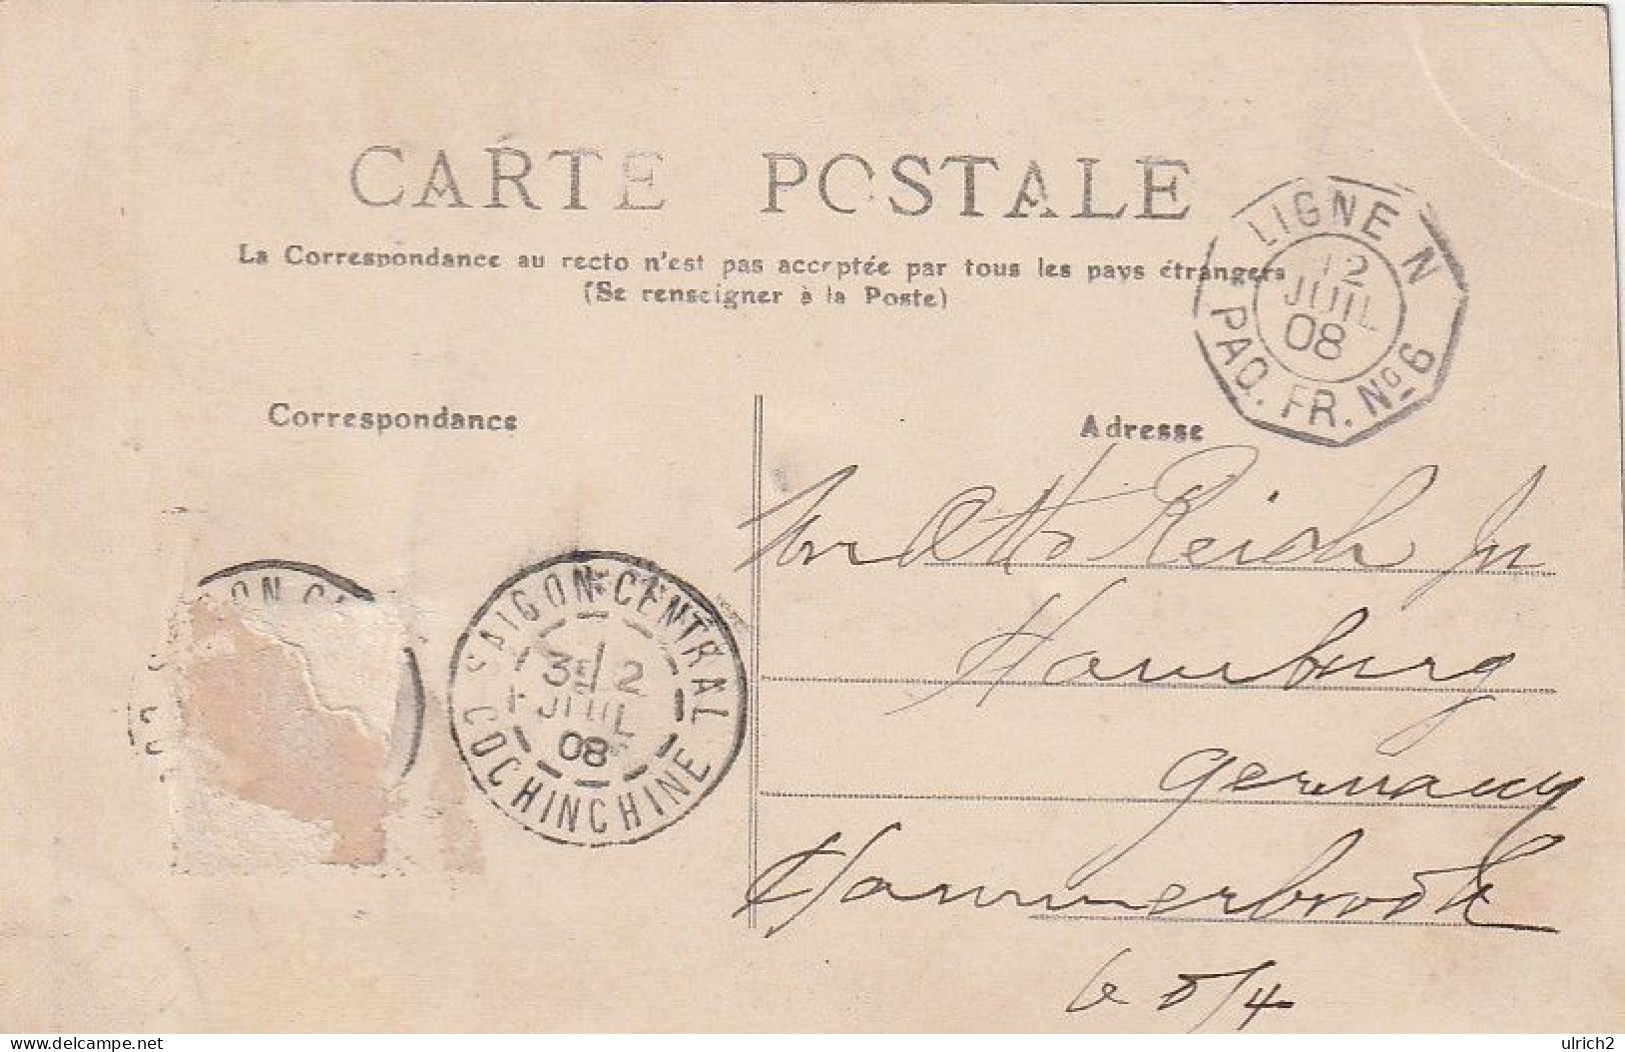 CARTE POSTALE
La Correspondance au recto n'est pas acceptée par tous les pays étrangers
(Se renseigner à la Poste)
LIGNE N
12
JUIL
08
PAQ. FR. No 6
Correspondance
Adresse
Otto Reich
Hamburg
Germany
Hammerbrook
SAIGON-CENTRAL
JUIL
08
COCHINCHINE
ON C
ulrich2